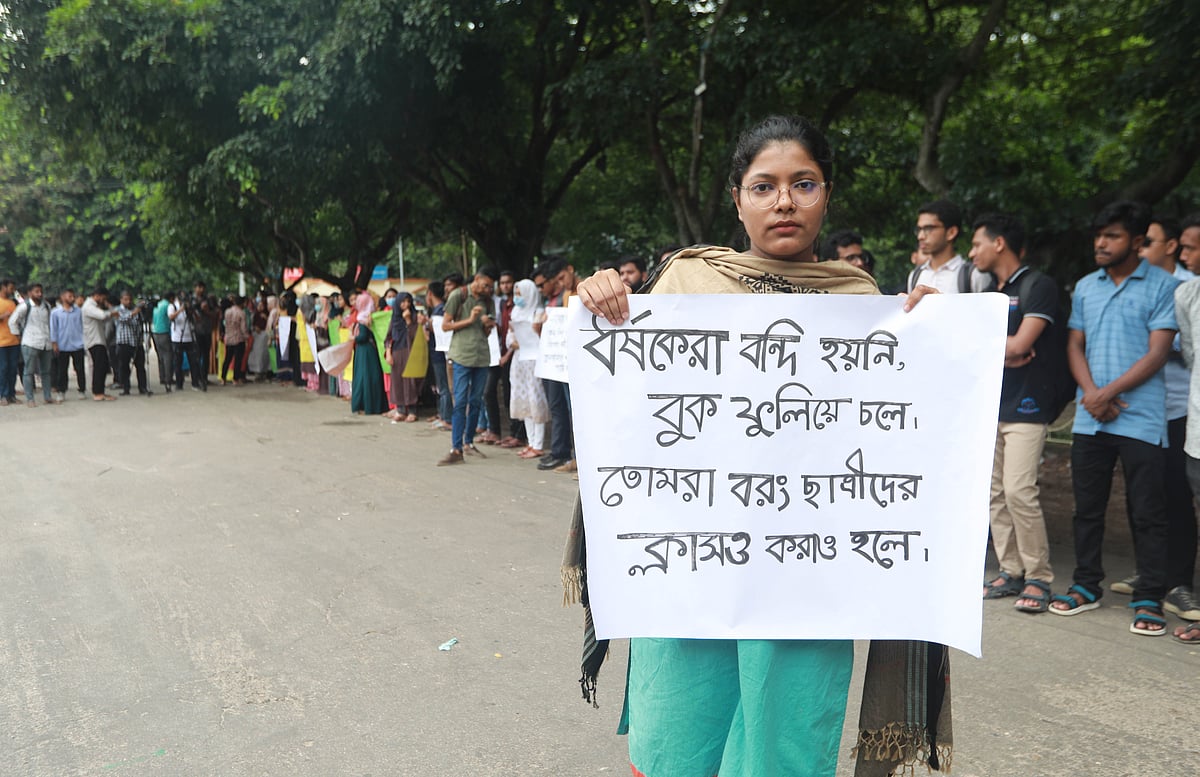 ধর্ষকেরা বন্দি হয়নি,
বুক ফুলিয়ে চলে।
তোমরা বরং ছাত্রীদের
ক্লাসও করাও হলে।